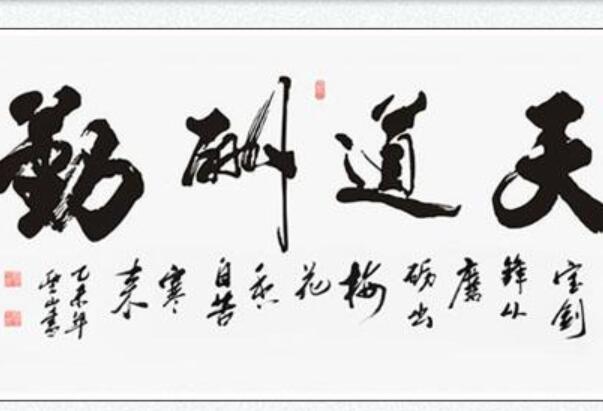 天道酬勤
宝剑
锋从
磨
砺出
梅
花
香
自苦
寒
来
乙未年